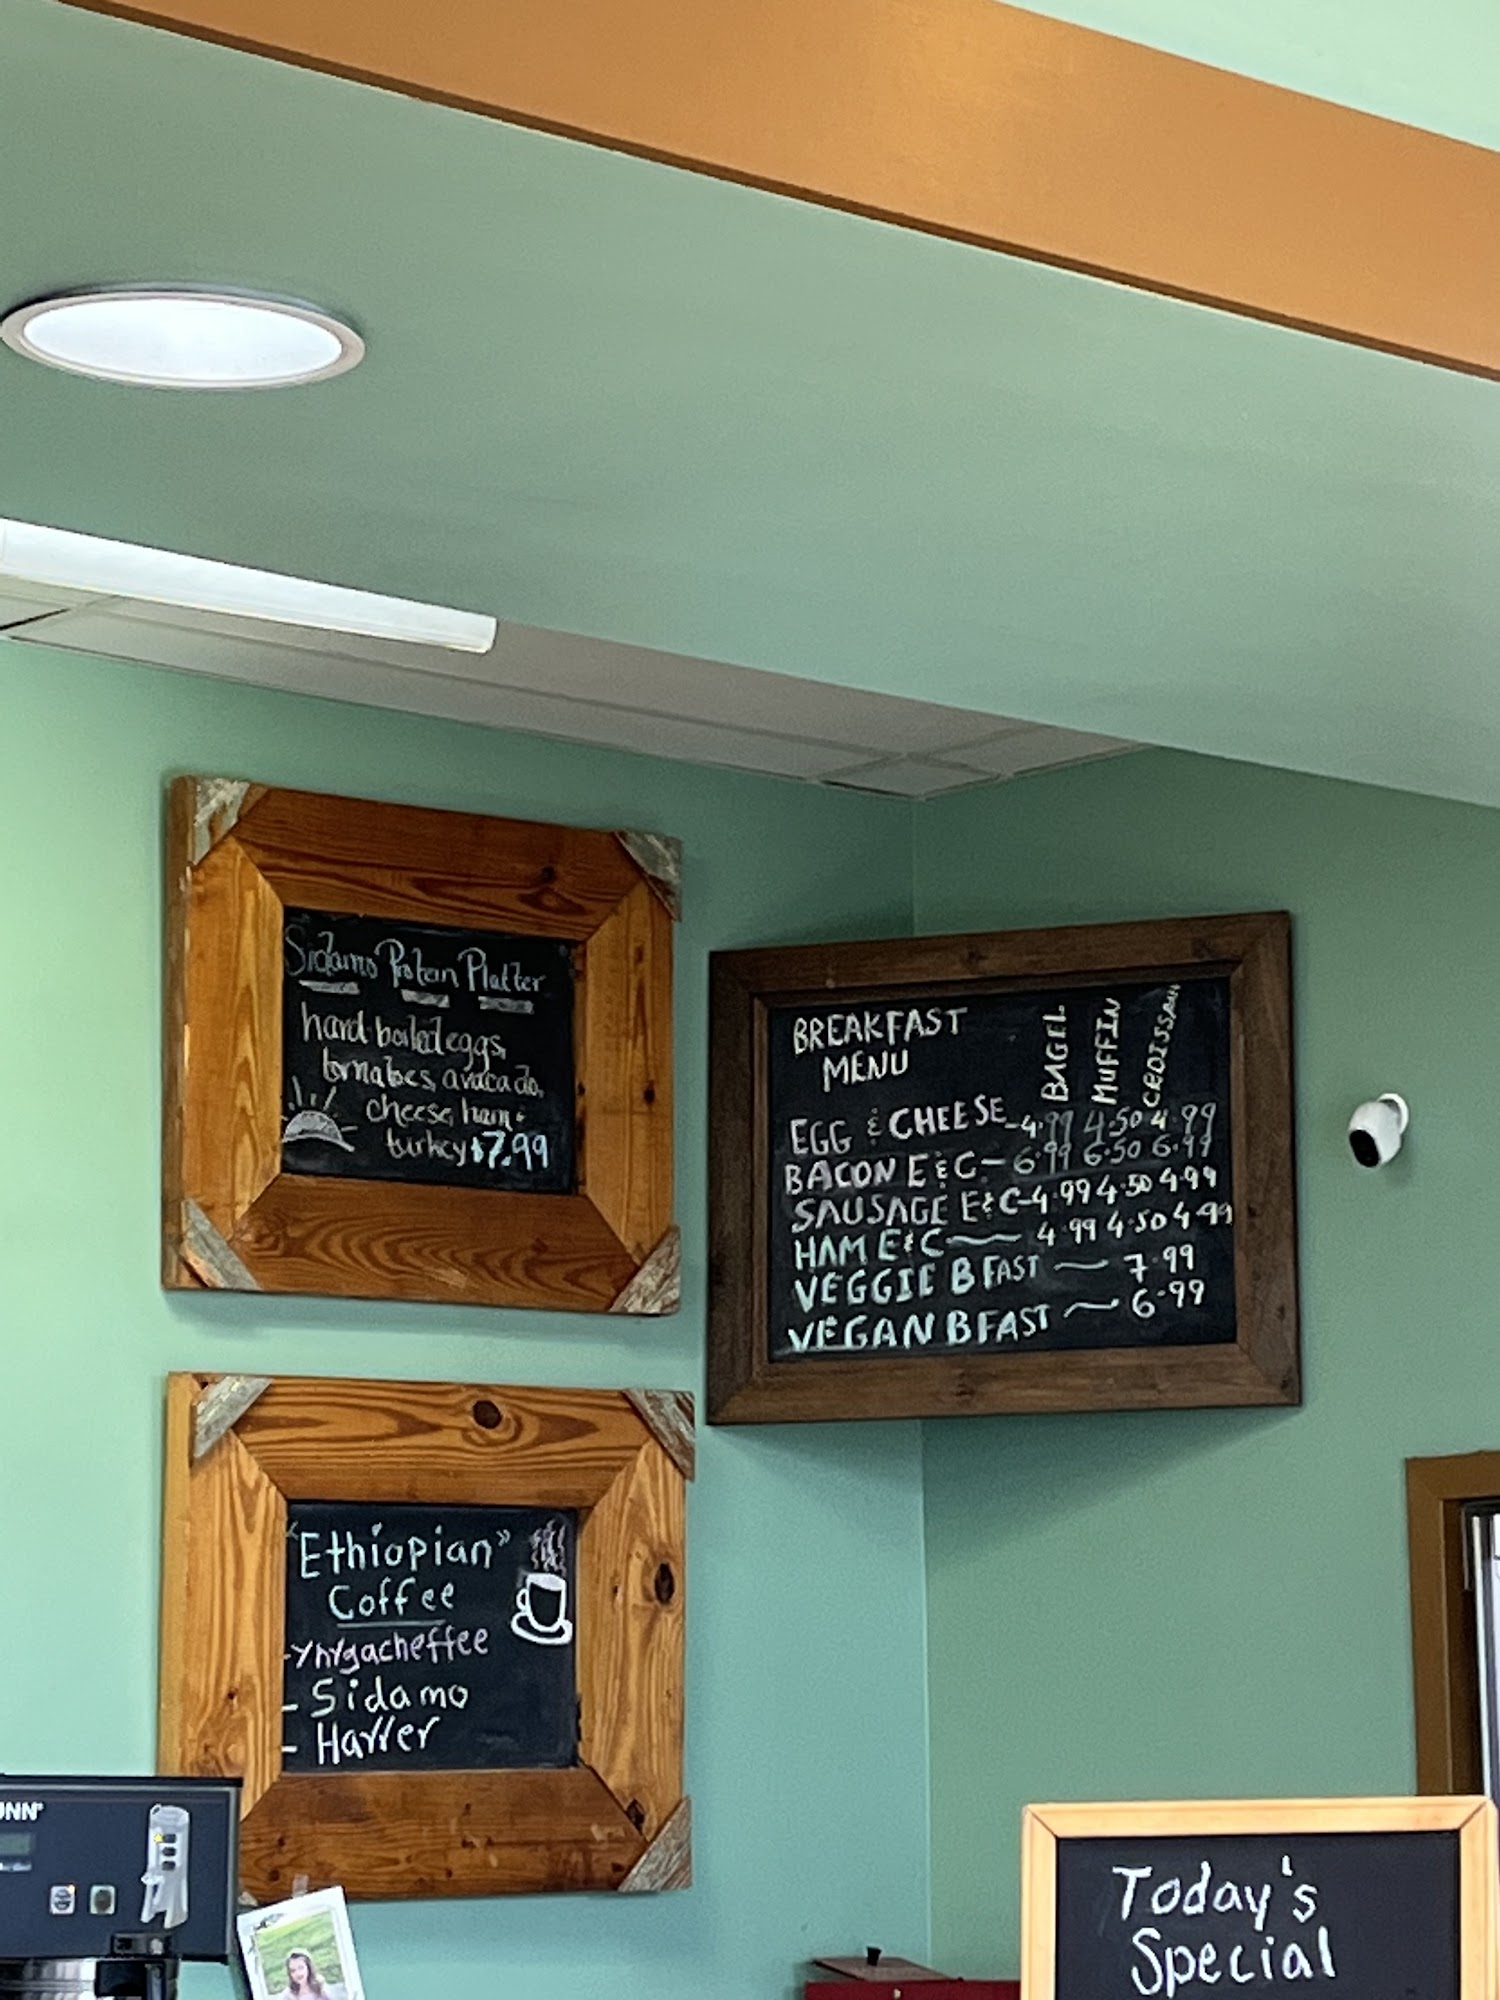 Sidamo Protein Platter
hard boiled eggs,
tomatoes, avacado,
cheese, ham &
turkey $7.99
BREAKFAST
MENU
BAGEL
MUFFIN
CROISSAN
EGG & CHEESE - 4.99 4.50 4.99
BACON E & C - 6.99 6.50 6.99
SAUSAGE E & C - 4.99 4.50 4.99
HAM E & C — 4.99 4.50 4.99
VEGGIE BFAST — 7.99
VEGAN BFAST — 6.99
"Ethiopian"
Coffee
- Yrygacheffee
- Sidamo
- Harrer
UNN®
Today's
Special